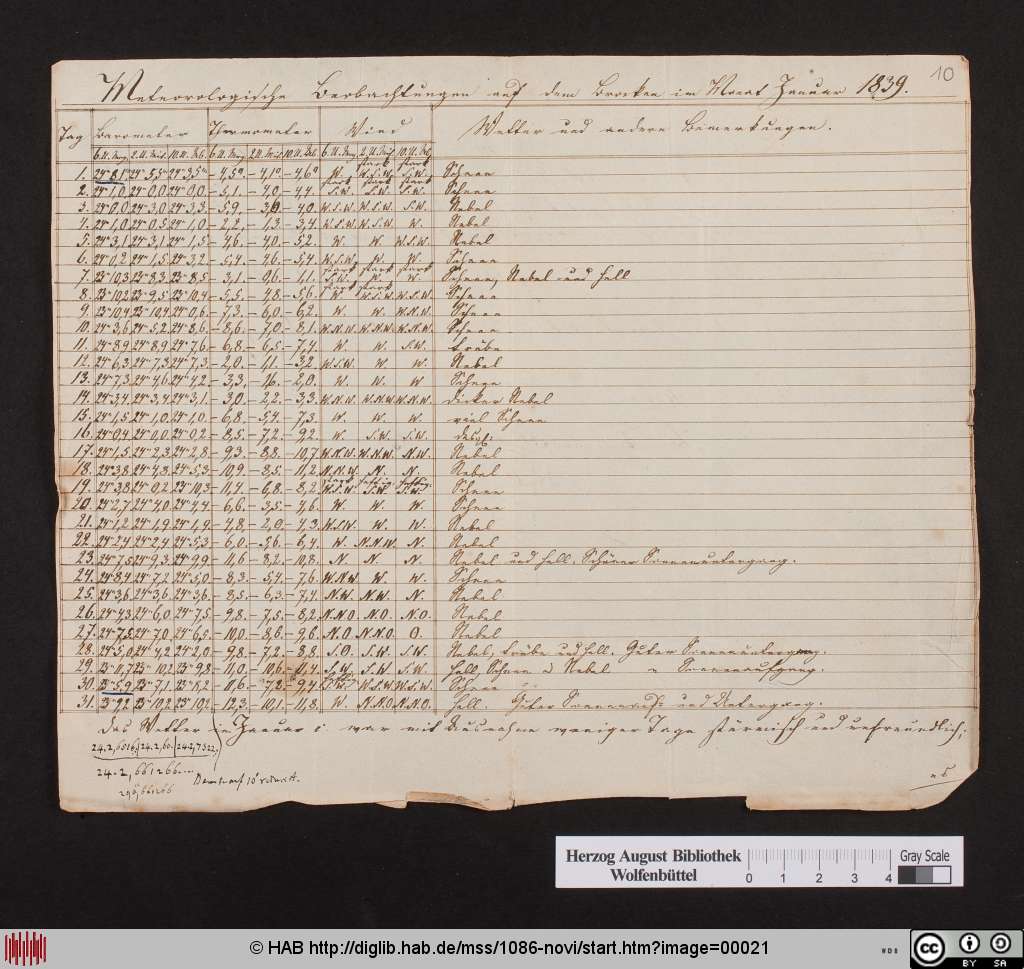 10
Meteorologische Beobachtungen auf dem Brocken im Monat Januar 1839.
Tag Barometer Thermometer Wind Wetter und andere Bemerkungen.
6.U.Mrg. 2.U.Mit. 10.U.Ab. 6.U.Mrg. 2.U.Mit. 10.U.Ab. 6.U.Mrg. 2.U.Mit. 10.U.Ab.
1. 24"8,1'" 24"5,5'" 24"3,5'" – 4,5° – 4,1° – 4,6° W. stark W.S.W. stark S.W. Schnee
2. 24"1,0 24"0,0 24"0,0 – 5,1 – 4,0 – 4,4 stark S.W. stark S.W. stark S.W. Schnee
3. 24"0,0 24"3,0 24"3,3 – 5,9 – 3,9 – 4,0 W.S.W. W.S.W. S.W. Nebel
4. 24"1,0 24"0,5 24"1,0 – 2,2 – 1,3 – 3,4 W.S.W. W.S.W. W. Nebel
5. 24"3,1 24"3,1 24"1,5 – 4,6 – 4,0 – 5,2 W. W. W.S.W. Nebel
6. 24"0,2 24"1,5 24"3,2 – 5,4 – 4,6 – 5,4 W.S.W. W. W. Schnee
7. 23"10,3 23"8,3 23"8,5 – 3,1 – 0,6 – 1,1 stark S.W. stark W. stark W. Schnee, Nebel und hell
8. 23"10,2 23"9,5 23"10,4 – 5,5 – 4,8 – 5,6 stark W. stark W.S.W. W.S.W. Schnee
9. 23"10,4 23"10,4 24"0,6 – 7,3 – 6,0 – 6,2 W. W. W.N.W. Schnee
10. 24"3,6 24"5,2 24"8,6 – 8,6 – 7,0 – 8,1 W.N.W. W.N.W. W.N.W. Schnee
11. 24"8,9 24"8,9 24"7,6 – 6,8 – 6,5 – 7,4 W. W. S.W. trübe
12. 24"6,3 24"7,3 24"7,3 – 2,0 – 1,1 – 3,2 W.S.W. W. W. Nebel
13. 24"7,3 24"4,6 24"4,2 – 3,3 – 1,6 – 2,0 W. W. W Schnee
14. 24"3,4 24"3,4 24"3,1 – 3,0 – 2,2 – 3,3 W.N.W. W.N.W. W.N.W. dicker Nebel
15. 24"1,5 24"1,0 24"1,0 – 6,8 – 5,4 – 7,3 W. W. W. viel Schnee
16. 24"0,4 24"0,0 24"0,2 – 8,5 – 7,2 – 9,2 W. S.W. S.W. desgl.
17. 24"1,5 24"2,3 24"2,8 – 9,3 – 8,8 – 10,7 W.N.W. W.N.W. N.W. Nebel
18. 24"3,8 24"4,8 24"5,3 – 10,9 – 8,5 – 11,2 N.N.W. N. N. Nebel
19. 24"3,8 24"0,2 23"10,3 – 11,4 – 6,8 – 8,2 W.S.W. S.W. S.W. Schnee
20. 24"2,7 24"4,0 24"4,4 – 6,6 – 3,5 – 4,6 W. W. W. Schnee
21. 24"1,2 24"1,9 24"1,9 – 4,8 – 2,0 – 4,3 W.S.W. W. W. Nebel
22. 24"2,4 24"2,4 24"5,3 – 6,0 – 5,6 – 6,4 W. N.N.W. N. Nebel
23. 24"7,5 24"9,3 24"9,9 – 11,6 – 8,2 – 10,8 N. N. N. Nebel und hell. Schöner Sonnenuntergang.
24. 24"8,4 24"7,2 24"5,0 – 8,3 – 5,4 – 7,6 W.N.W W. W. Schnee
25. 24"3,6 24"3,6 24"3,6 – 8,5 – 6,3 – 7,4 N.W. N.W. N. Nebel
26. 24"4,3 24"6,0 24"7,5 – 9,8 – 7,5 – 8,2 N.N.O. N.O. N.O. Nebel
27. 24"7,5 24"7,0 24"6,5 – 10,0 – 8,6 – 9,6 N.O. N.N.O. O. Nebel
28. 24"5,0 24"4,2 24"2,0 – 9,8 – 7,2 – 8,8 S.O. S.W. S.W. Nebel, trübe und hell. Guter Sonnenuntergang.
29. 23"11,7 23"10,2 23"9,8 – 11,0 – 10,6 – 11,4 S.W. S.W S.W. hell, Schnee u Nebel " Sonnenaufgang.
30. 23"5,9 23"7,1 23"8,2 – 8,6 – 7,2 – 9,4 S.W. W.S.W. W.S.W. Schnee
31. 23"9,2 23"10,2 23"10,2 – 12,3 – 10,1 – 11,8 W. N.N.O. N.N.O. hell. Guter Sonnenauf- und Untergang.
Das Wetter in Januar war mit Ausnahme weniger Tage stürmisch und unfreundlich;
24.2,661266...
296,661266
Herzog August Bibliothek
Wolfenbüttel
0 1 2 3 4
Gray Scale
© HAB http://diglib.hab.de/mss/1086-novi/start.htm?image=00021
WDB
cc BY SA